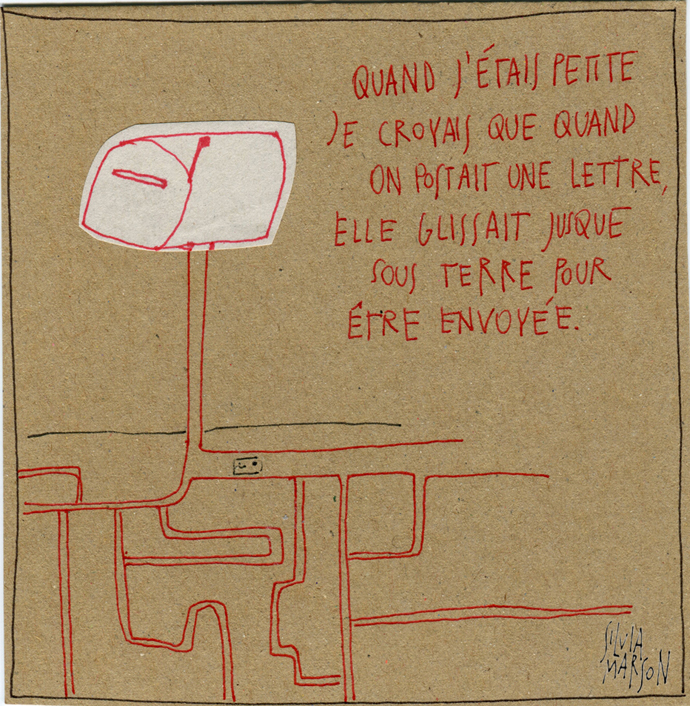 QUAND J'ÉTAIS PETITE
JE CROYAIS QUE QUAND
ON POSTAIT UNE LETTRE,
ELLE GLISSAIT JUSQUE
SOUS TERRE POUR
ÊTRE ENVOYÉE.
SILVIA
MARSON